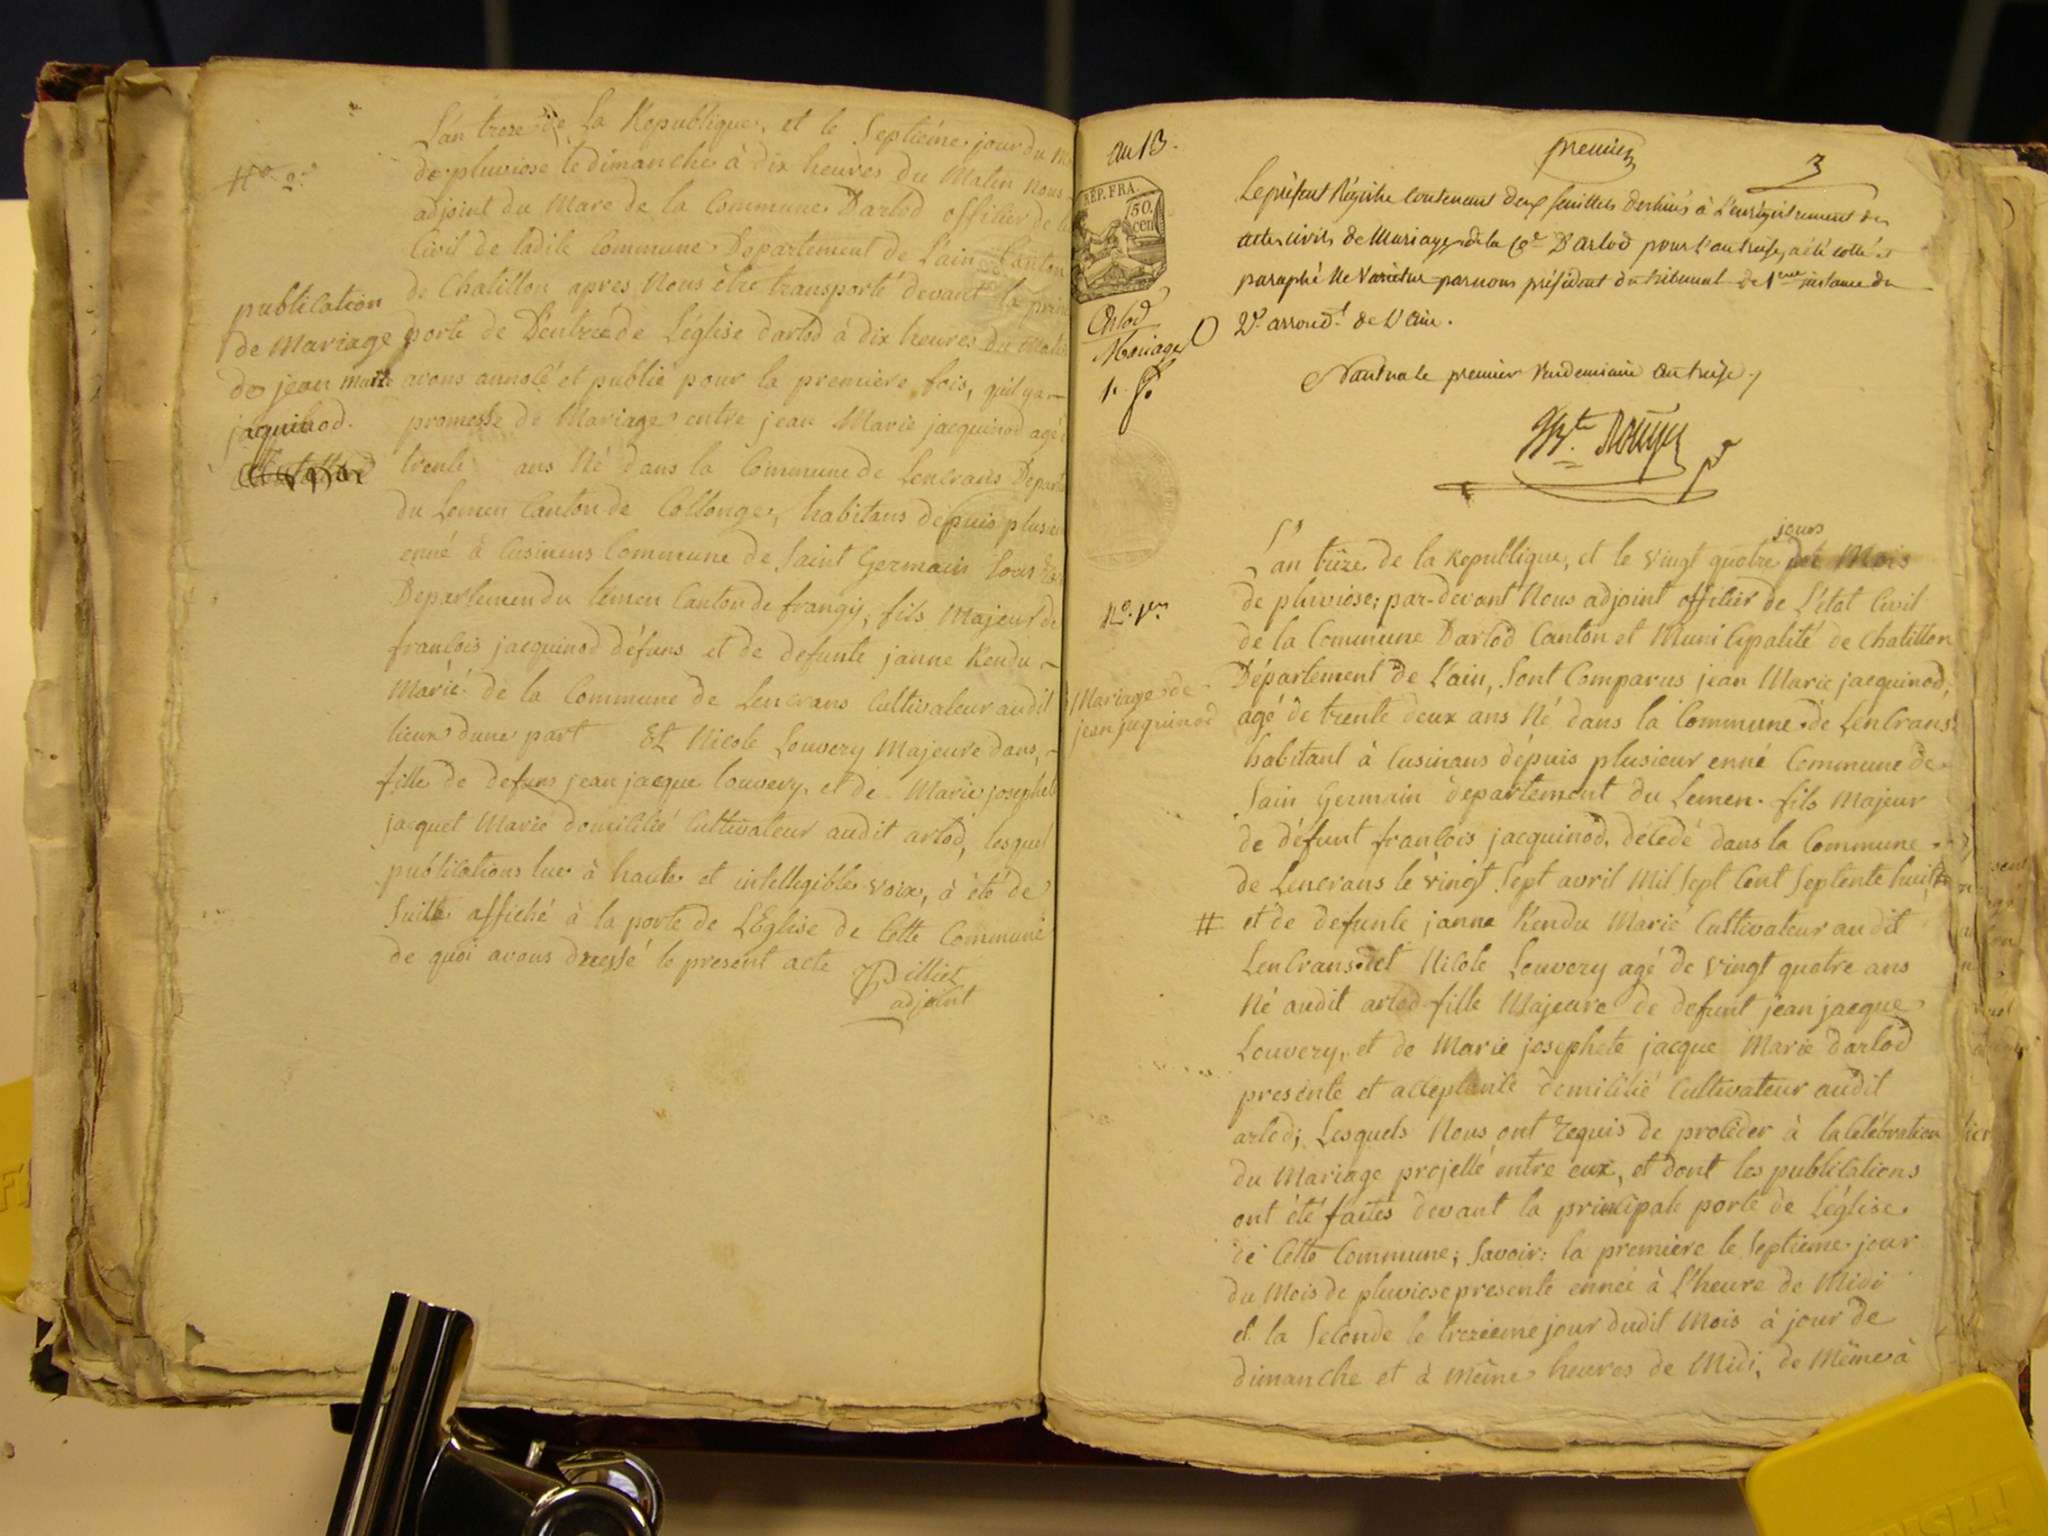 L'an treze de La Republique, et le Septiéme jour du
No. 2.
de pluviose le dimanche à dix heures du Matin Nous
adjoint du Mare de la Commune Darlod officier de
Civil de ladite Commune Departement de L'ain Canton
de Chatillon apres Nous être transporté devant la prin
publication
de Mariage
de jean marie
jacquinod.
porte de Dentrée de L'église darlod à dix heures Du Matin
avons annolé et publié pour la premiere fois, quil ya
promesse de Mariage entre jean Marie jacquinod agé
trente ans Né dans la Commune de Lencrans Depart
du Lemen Canton de Collonge, habitans depuis plusieu
enné à Cusinens Commune de Saint Germain Sous
Departemen du Lemen Canton de frangy, fils Majeur de
francois jacquinod défuns et de defunte janne Rendu
Marié de la Commune de Lencrans Cultivateur audit
lieux dune part Et Nicole Louvery Majeure dans,
fille de defuns jean jacque Louvery, et de Marie josephete
jacquet Marié domicilié Cultivateur audit arlod, lesquel
publications lue à haute et intellegible voix, à été de
Suite affiché à la porte de L'Eglise de Cette Commune
de quoi avons dressé le present acte
Billiet
adjoint
an 13.
REP. FRA.
50.
cen
Arlod
Mariages
1. f.
premier
3
Le présent Régistre contenant deux feuillets destinés à L'enrégistrement des
actes civils de Mariages de la Cne D'Arlod pour l'an treise, a été cotté et
paraphé Ne Varietur par nous président du tribunal de 1ere instance du
2e. arrond.t de L'Ain.
Nantua le premier Vendemiaire an treise.
No. 1er.
L'an treize de la Republique, et le vingt quatre jours du Mois
de pluviose; par-devant Nous adjoint officier de L'état Civil
de la Commune Darlod Canton et Municipalité de Chatillon
Mariage de
jean jaquinod
Département de L'ain, Sont Comparus jean Marie jacquinod,
agé de trente deux ans Né dans la Commune de Lencrans
habitant à Cusinans dépuis plusieur enné Commune de
Sain Germain département du Lemen. fils Majeur
de défunt francois jacquinod, décédé dans la Commune
de Lencrans le vingt Sept avril Mil Sept Cent Septente huit
# et de defunte janne Rendu Marié Cultivateur audit
Lencrans. et Nicole Louvery agé de vingt quatre ans
Né audit arlod fille Majeure de defunt jean jacque
Louvery, et de Marie josephete jacque Marie darlod
presente et acceptante domicilié Cultivateur audit
arlod; Lesquels Nous ont requis de procéder à la Célébration
du Mariage projetté entre eux, et dont les publications
ont été faites devant la principale porte de L'église
de Cette Commune; Savoir: la premiere le Septieme jour
du Mois de pluviose presente enneé à L'heure de Midi
et la Seconde le trezieme jour dudit Mois à jour de
dimanche et à Même heures de Midi, de Même à